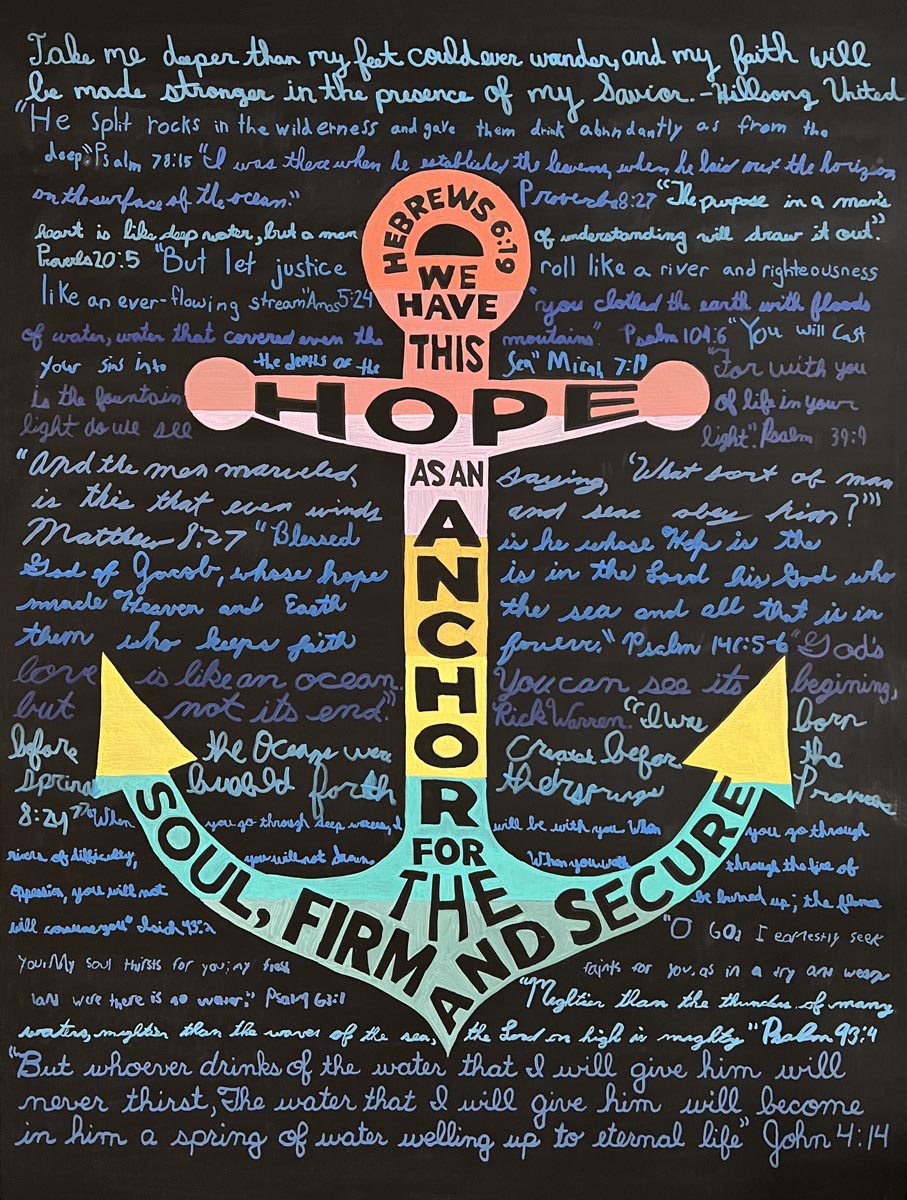 Take me deeper than my feet could ever wander, and my faith will
be made stronger in the presence of my Savior. -Hillsong United
"He split rocks in the wilderness and gave them drink abundantly as from the
deep" Psalm 78:15 "I was there when he established the heavens, when he laid out the horizon
on the surface of the ocean." Proverbs 8:27 "The purpose in a man's
heart is like deep water, but a man of understanding will draw it out."
Proverbs 20:5 "But let justice roll like a river and righteousness
like an ever-flowing stream" Amos 5:24 "you clothed the earth with floods
of water, water that covered even the mountains". Psalm 104:6 "You will cast
your sins into the depths of the Sea" Micah 7:19 "For with you
is the fountain of life in your
light do we see light". Psalm 39:9
"And the men marveled, saying, 'What sort of man
is this that even winds and seas obey him?'"
Matthew 8:27 "Blessed is he whose Help is the
God of Jacob, whose hope is in the Lord his God who
made Heaven and Earth the sea and all that is in
them who keeps faith forever." Psalm 146:5-6 "God's
love is like an ocean. You can see its begining,
but not its end." Rick Warren. "I was born
before the Oceans were Created before the
springs bubbled forth their springs Proverbs
8:24" "When you go through deep waters, I will be with you. When you go through
rivers of difficulty, you will not drown. When you walk through the fire of
oppression, you will not be burned up; the flames
will consume you" Isaiah 43:2 "O God I earnestly seek
you. My soul thirsts for you; my flesh faints for you, as in a dry and weary
land were there is no water." Psalm 63:1 "Mightier than the thunders of many
waters, mightier than the waves of the sea, the Lord on high is mighty" Psalm 93:4
"But whoever drinks of the water that I will give him will
never thirst, The water that I will give him will become
in him a spring of water welling up to eternal life" John 4:14
HEBREWS 6:19
WE
HAVE
THIS
HOPE
AS AN
ANCHOR
FOR
THE
SOUL, FIRM AND SECURE